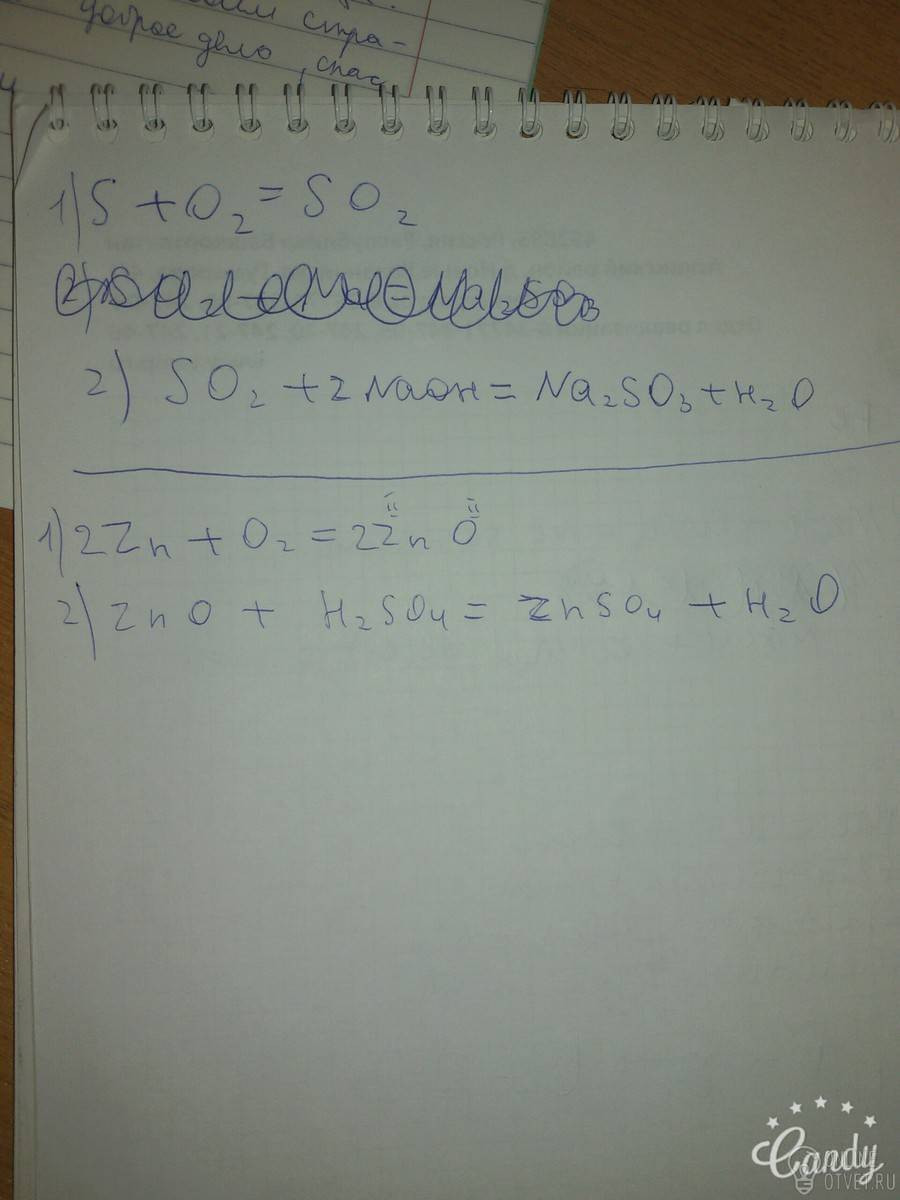 стра-
доброе дело, спас
1) S + O₂ = SO₂
2) SO₂ + 2NaOH = Na₂SO₃ + H₂O
1) 2Zn + O₂ = 2ZnO
2) ZnO + H₂SO₄ = ZnSO₄ + H₂O
Candy
OTVET.RU